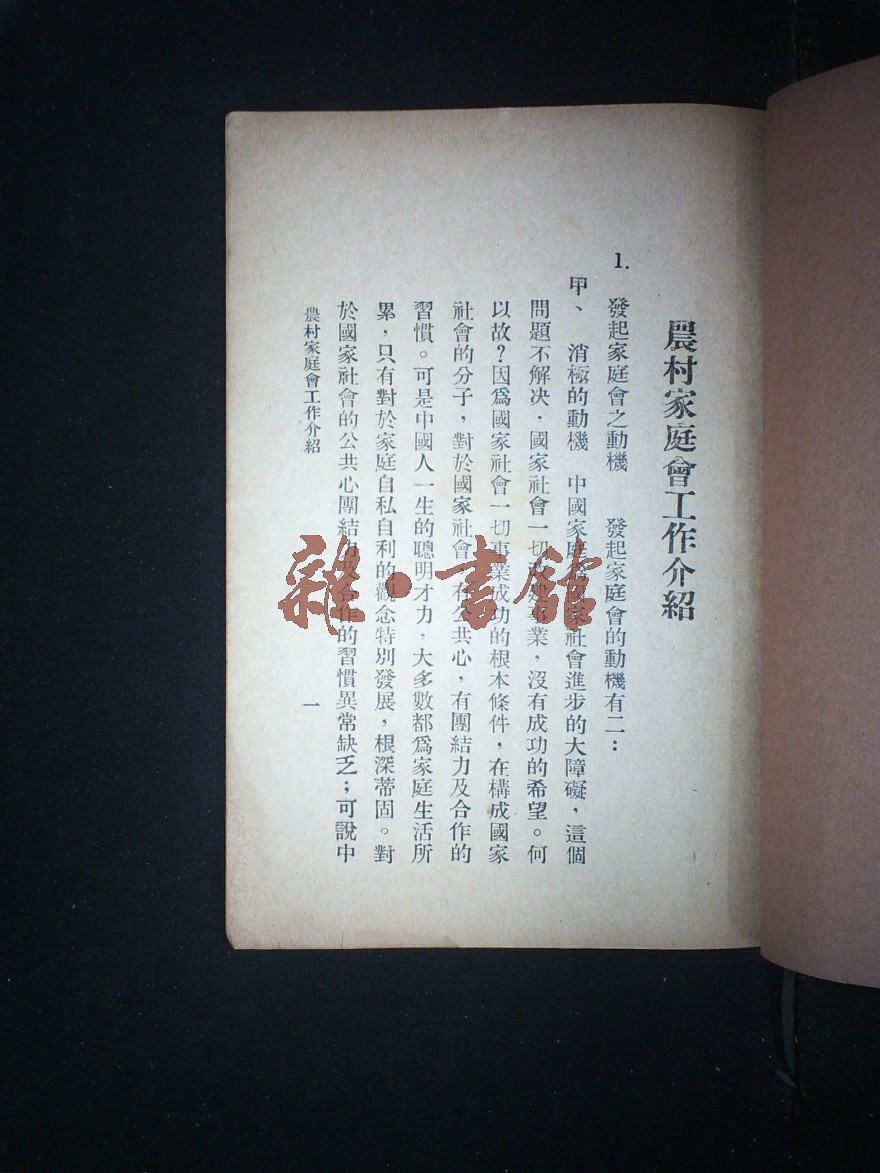 農村家庭會工作介紹
1. 發起家庭會之動機　發起家庭會的動機有二：
甲、消極的動機　中國家庭為國家社會進步的大障礙，這個
問題不解決．國家社會一切 事業，沒有成功的希望。何
以故？因爲國家社會一切事業成功的根本條件，在構成國家
社會的分子，對於國家社會 有公共心，有團結力及合作的
習慣。可是中國人一生的聰明才力，大多數都爲家庭生活所
累，只有對於家庭自私自利的觀念特別發展，根深蒂固。對
於國家社會的公共心團結力及合作的習慣異常缺乏；可說中
農村家庭會工作介紹
一
雜·書館